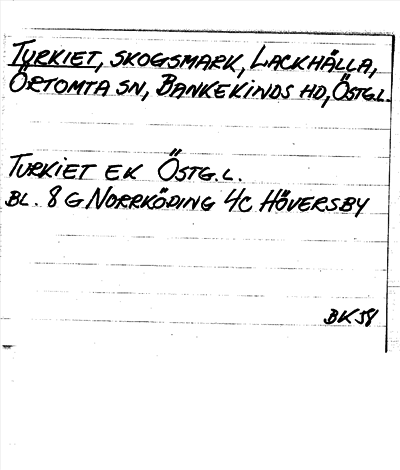 TURKIET, SKOGSMARK, LACKHÄLLA,
ÖRTOMTA SN, BANKEKINDS HD, ÖSTG.L.
TURKIET EK ÖSTG.L.
BL. 8 G NORRKÖDING 4C HÖVERSBY
BK58